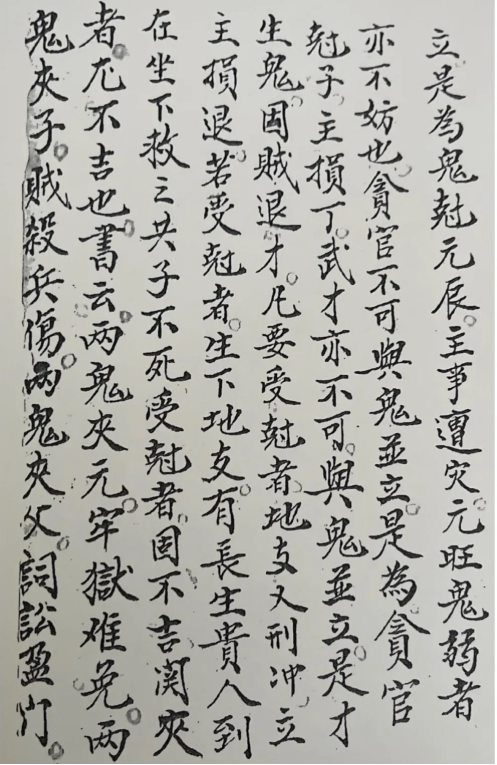 立是為鬼尅元辰。主事遭灾元旺鬼弱者
亦不妨也。貪官不可與鬼並立是為貪官
尅子。主損丁武才亦不可。與鬼並立是才
生鬼。因賊退才。凡要受尅者。地支又刑冲立
主損退。若受尅者。生下地支有長生貴人到
在坐下救之其子不死受尅者。固不吉関夾
者。尤不吉也。書云两鬼夾元。牢獄难免。两
鬼夾子。賊殺兵傷。两鬼夾父。詞訟盈门。